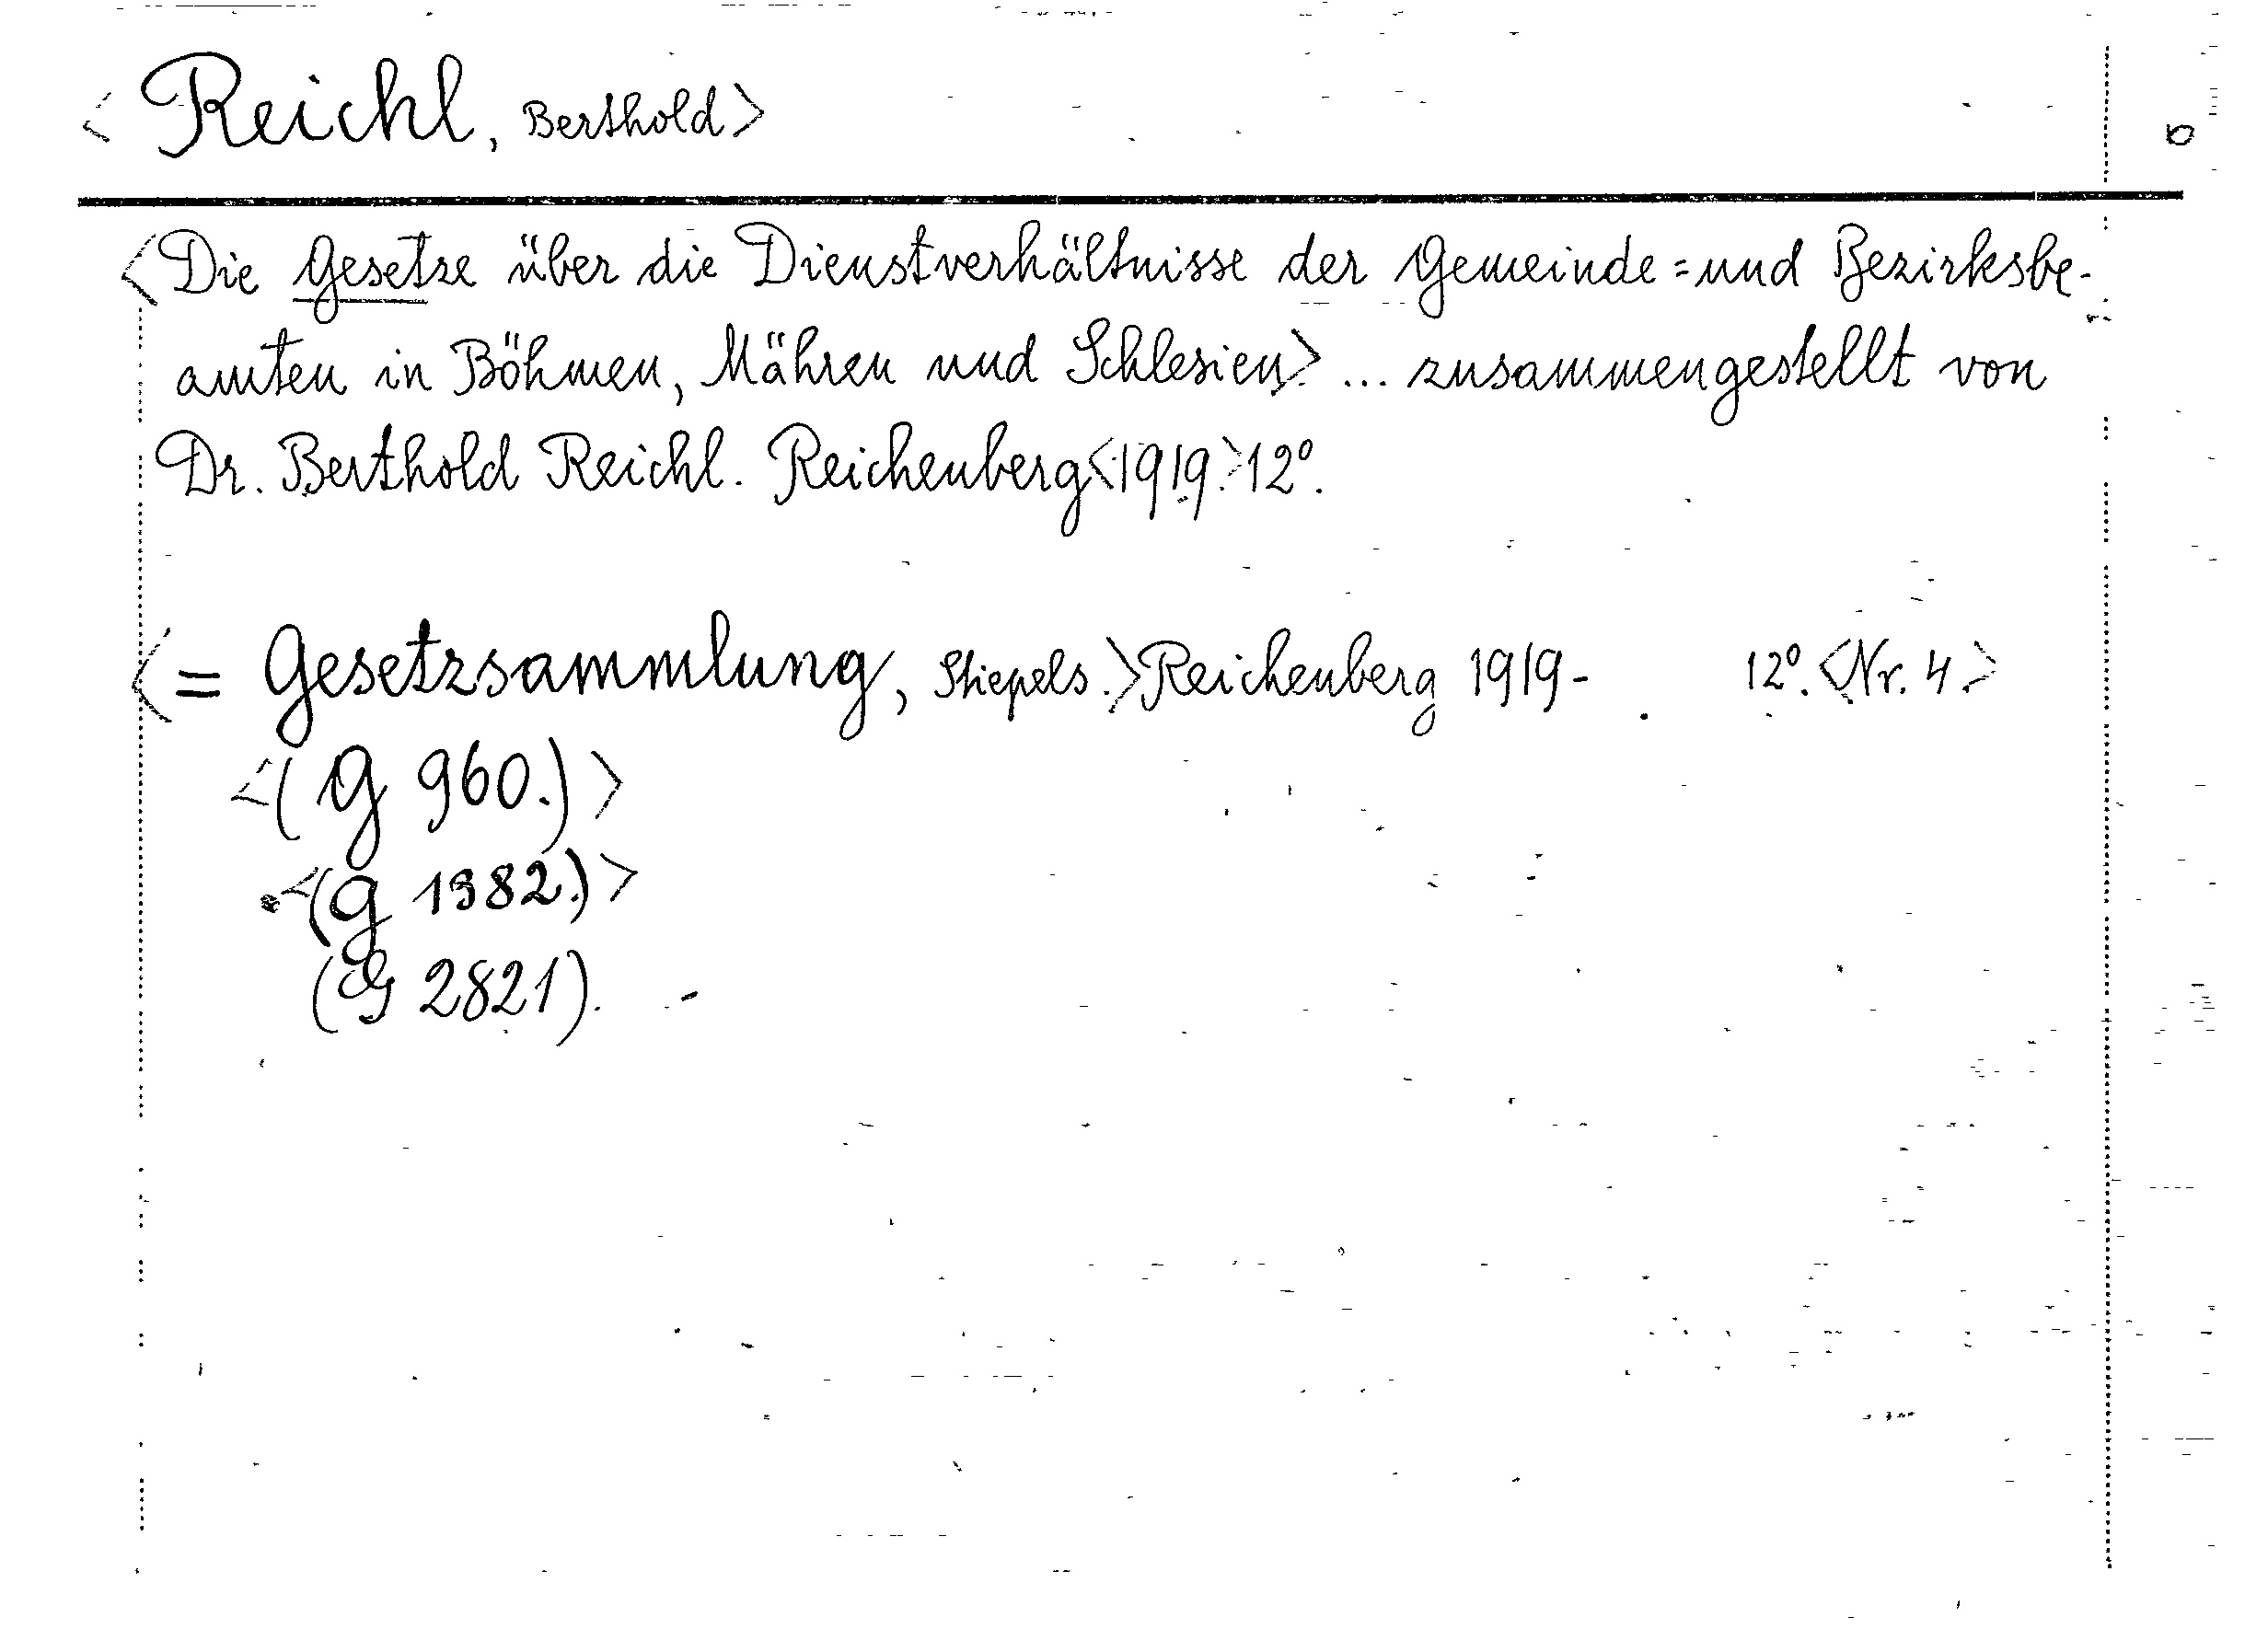 <Reichl, Berthold>
<Die Gesetze über die Dienstverhältnisse der Gemeinde=und Bezirksbe-
amten in Böhmen, Mähren und Schlesien> ... zusammengestellt von
Dr. Berthold Reichl. Reichenberg <1919.> 12°.
<= Gesetzsammlung, Stiepels.> Reichenberg 1919- . 12°. <Nr. 4>
<(G 960.)>
<(G 1382.)>
(G 2821).